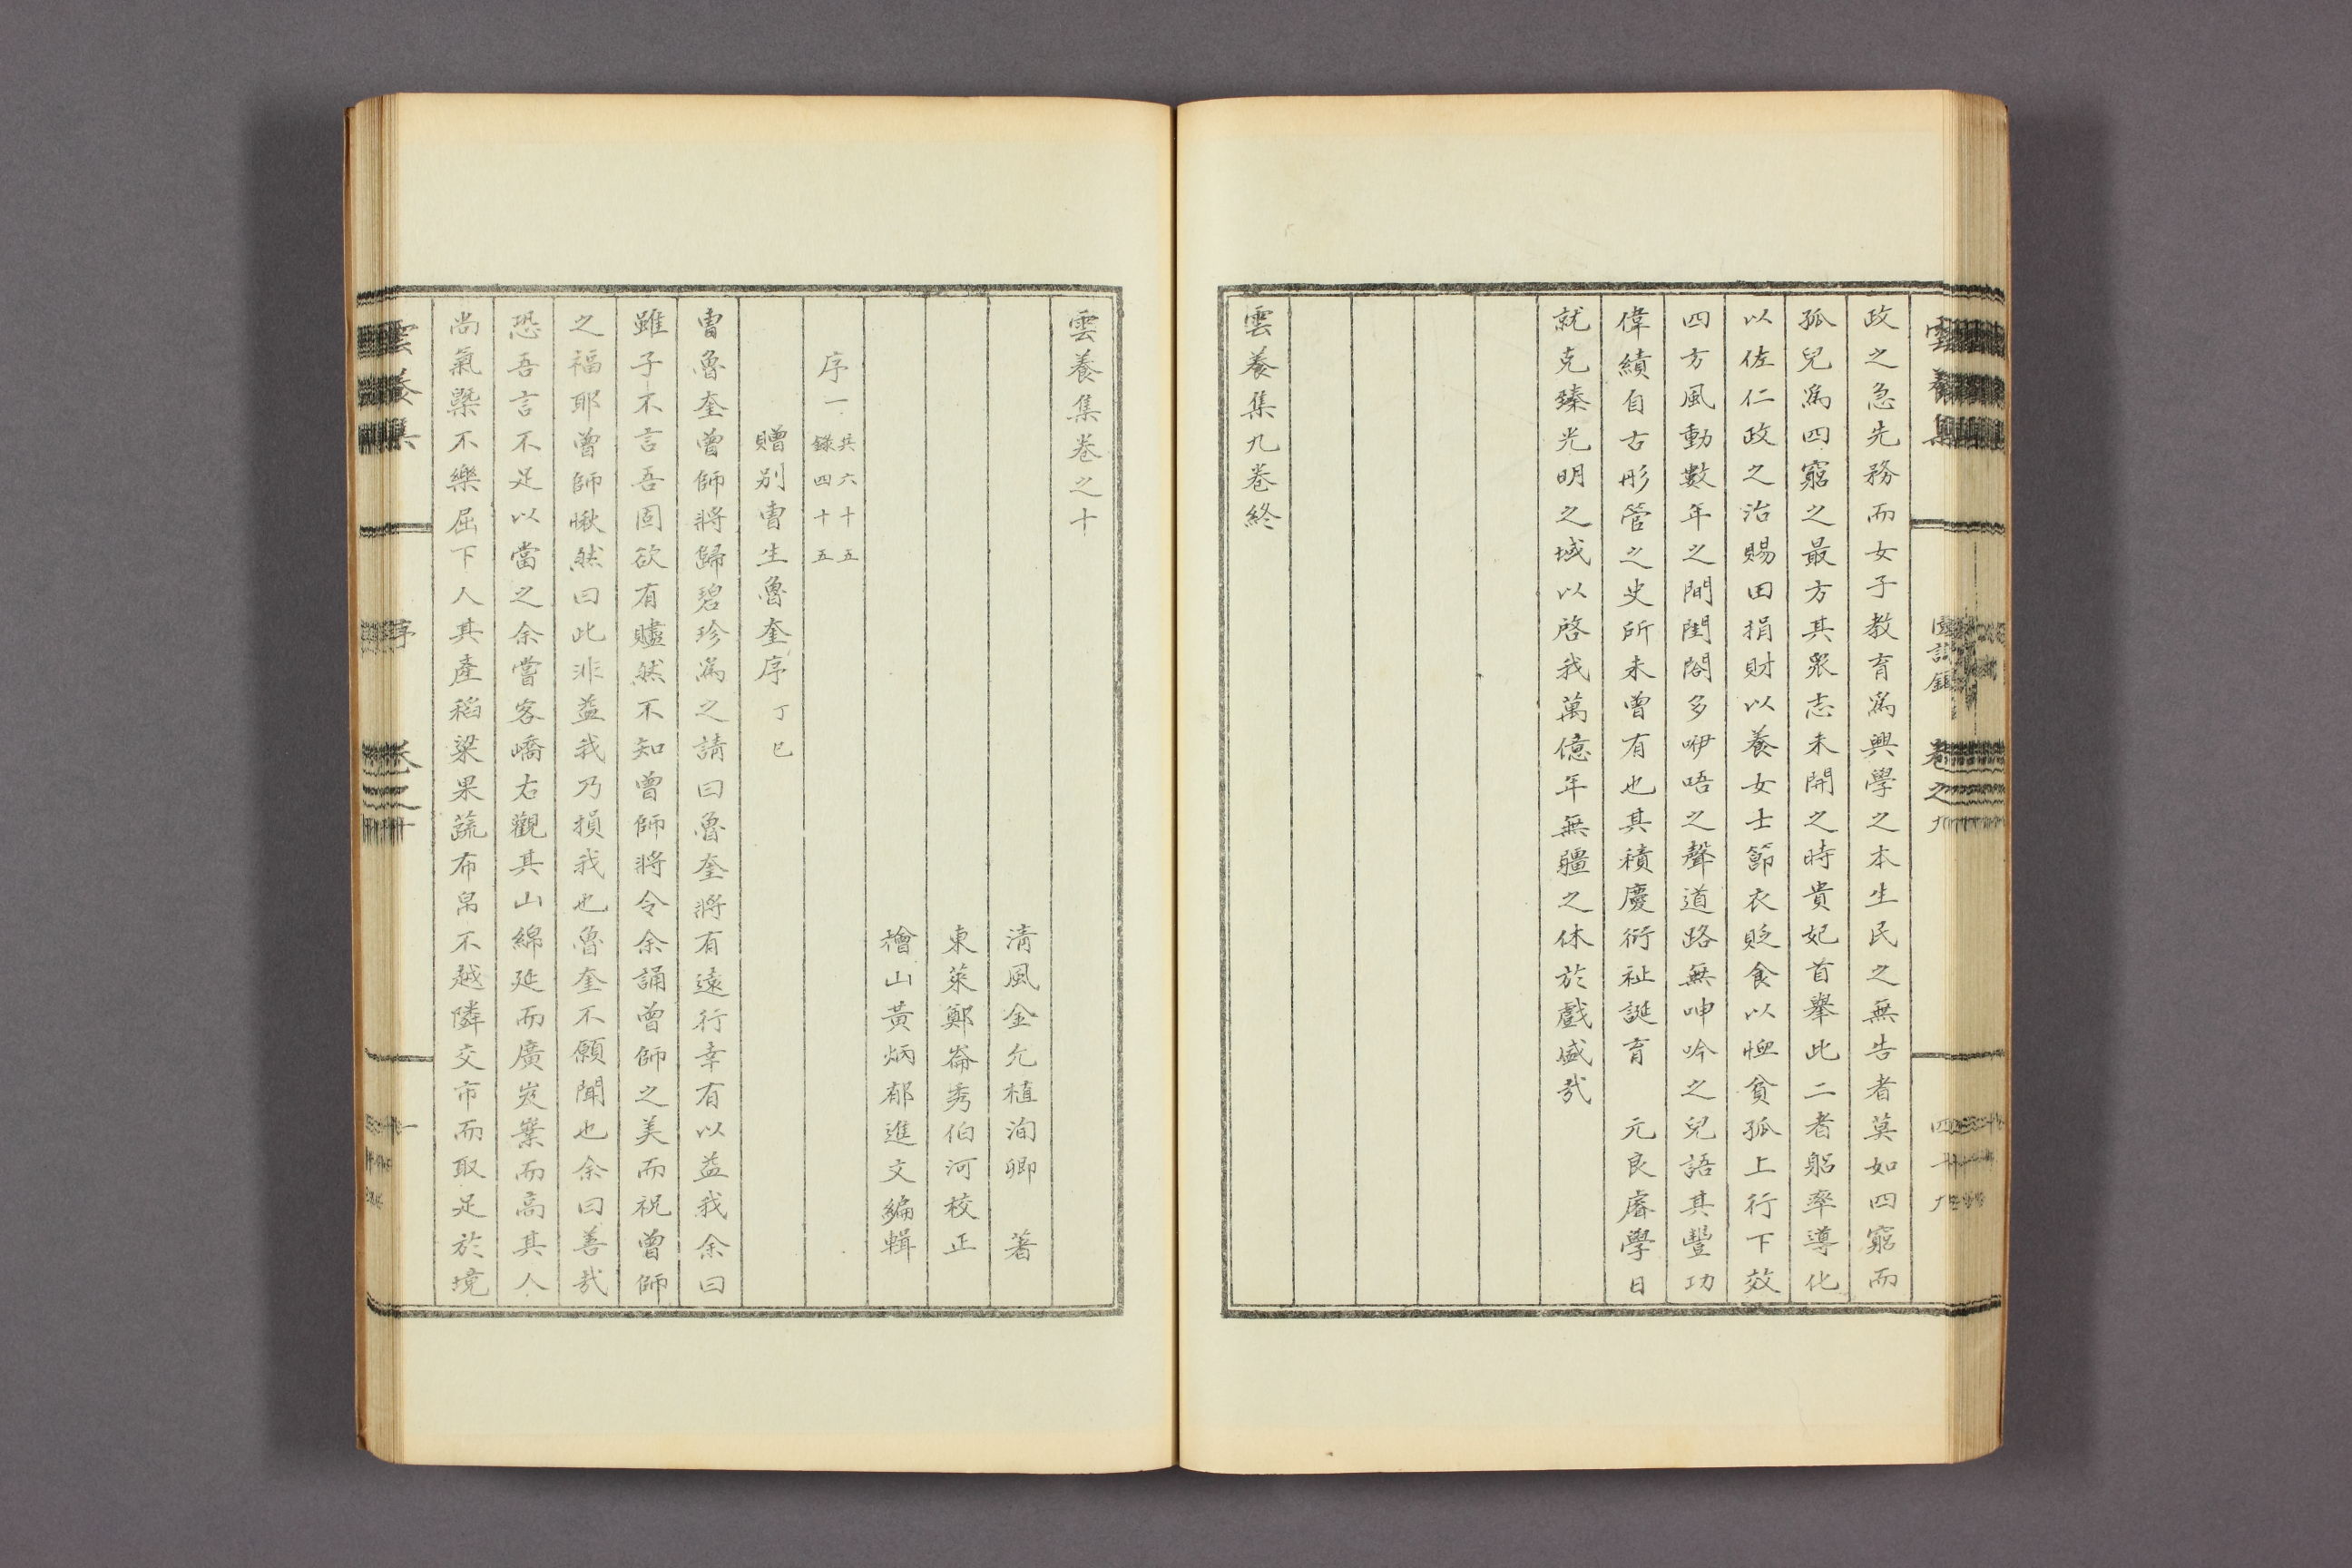 政之急先務而女子教育爲興學之本生民之無告者莫如四窮而
孤兒爲四窮之最方其衆志未開之時貴妃首舉此二者躳率導化
以佐仁政之治賜田捐財以養女士節衣貶食以恤貧孤上行下效
四方風動數年之間閨閤多咿唔之聲道路無呻吟之兒語其豐功
偉績自古彤管之史所未曾有也其積慶衍祉誕育 元良睿學日
就克臻光明之域以啓我萬億年無疆之休於戲盛哉
雲養集九卷終
雲養集卷之十
清風金允植洵卿 著
東萊鄭崙秀伯河校正
檜山黃炳郁進文編輯
序一 共六十五
錄四十五
贈別曺生魯奎序 丁巳
曺魯奎曾師將歸碧珍爲之請曰魯奎將有遠行幸有以益我余曰
雖子不言吾固欲有贐然不知曾師將令余誦曾師之美而祝曾師
之福耶曾師愀然曰此非益我乃損我也魯奎不願聞也余曰善哉
恐吾言不足以當之余嘗客嶠右觀其山綿延而廣岌嶪而高其人
尚氣槩不樂屈下人其產稻粱果蔬布帛不越隣交市而取足於境
雲養集
序
卷之十
一